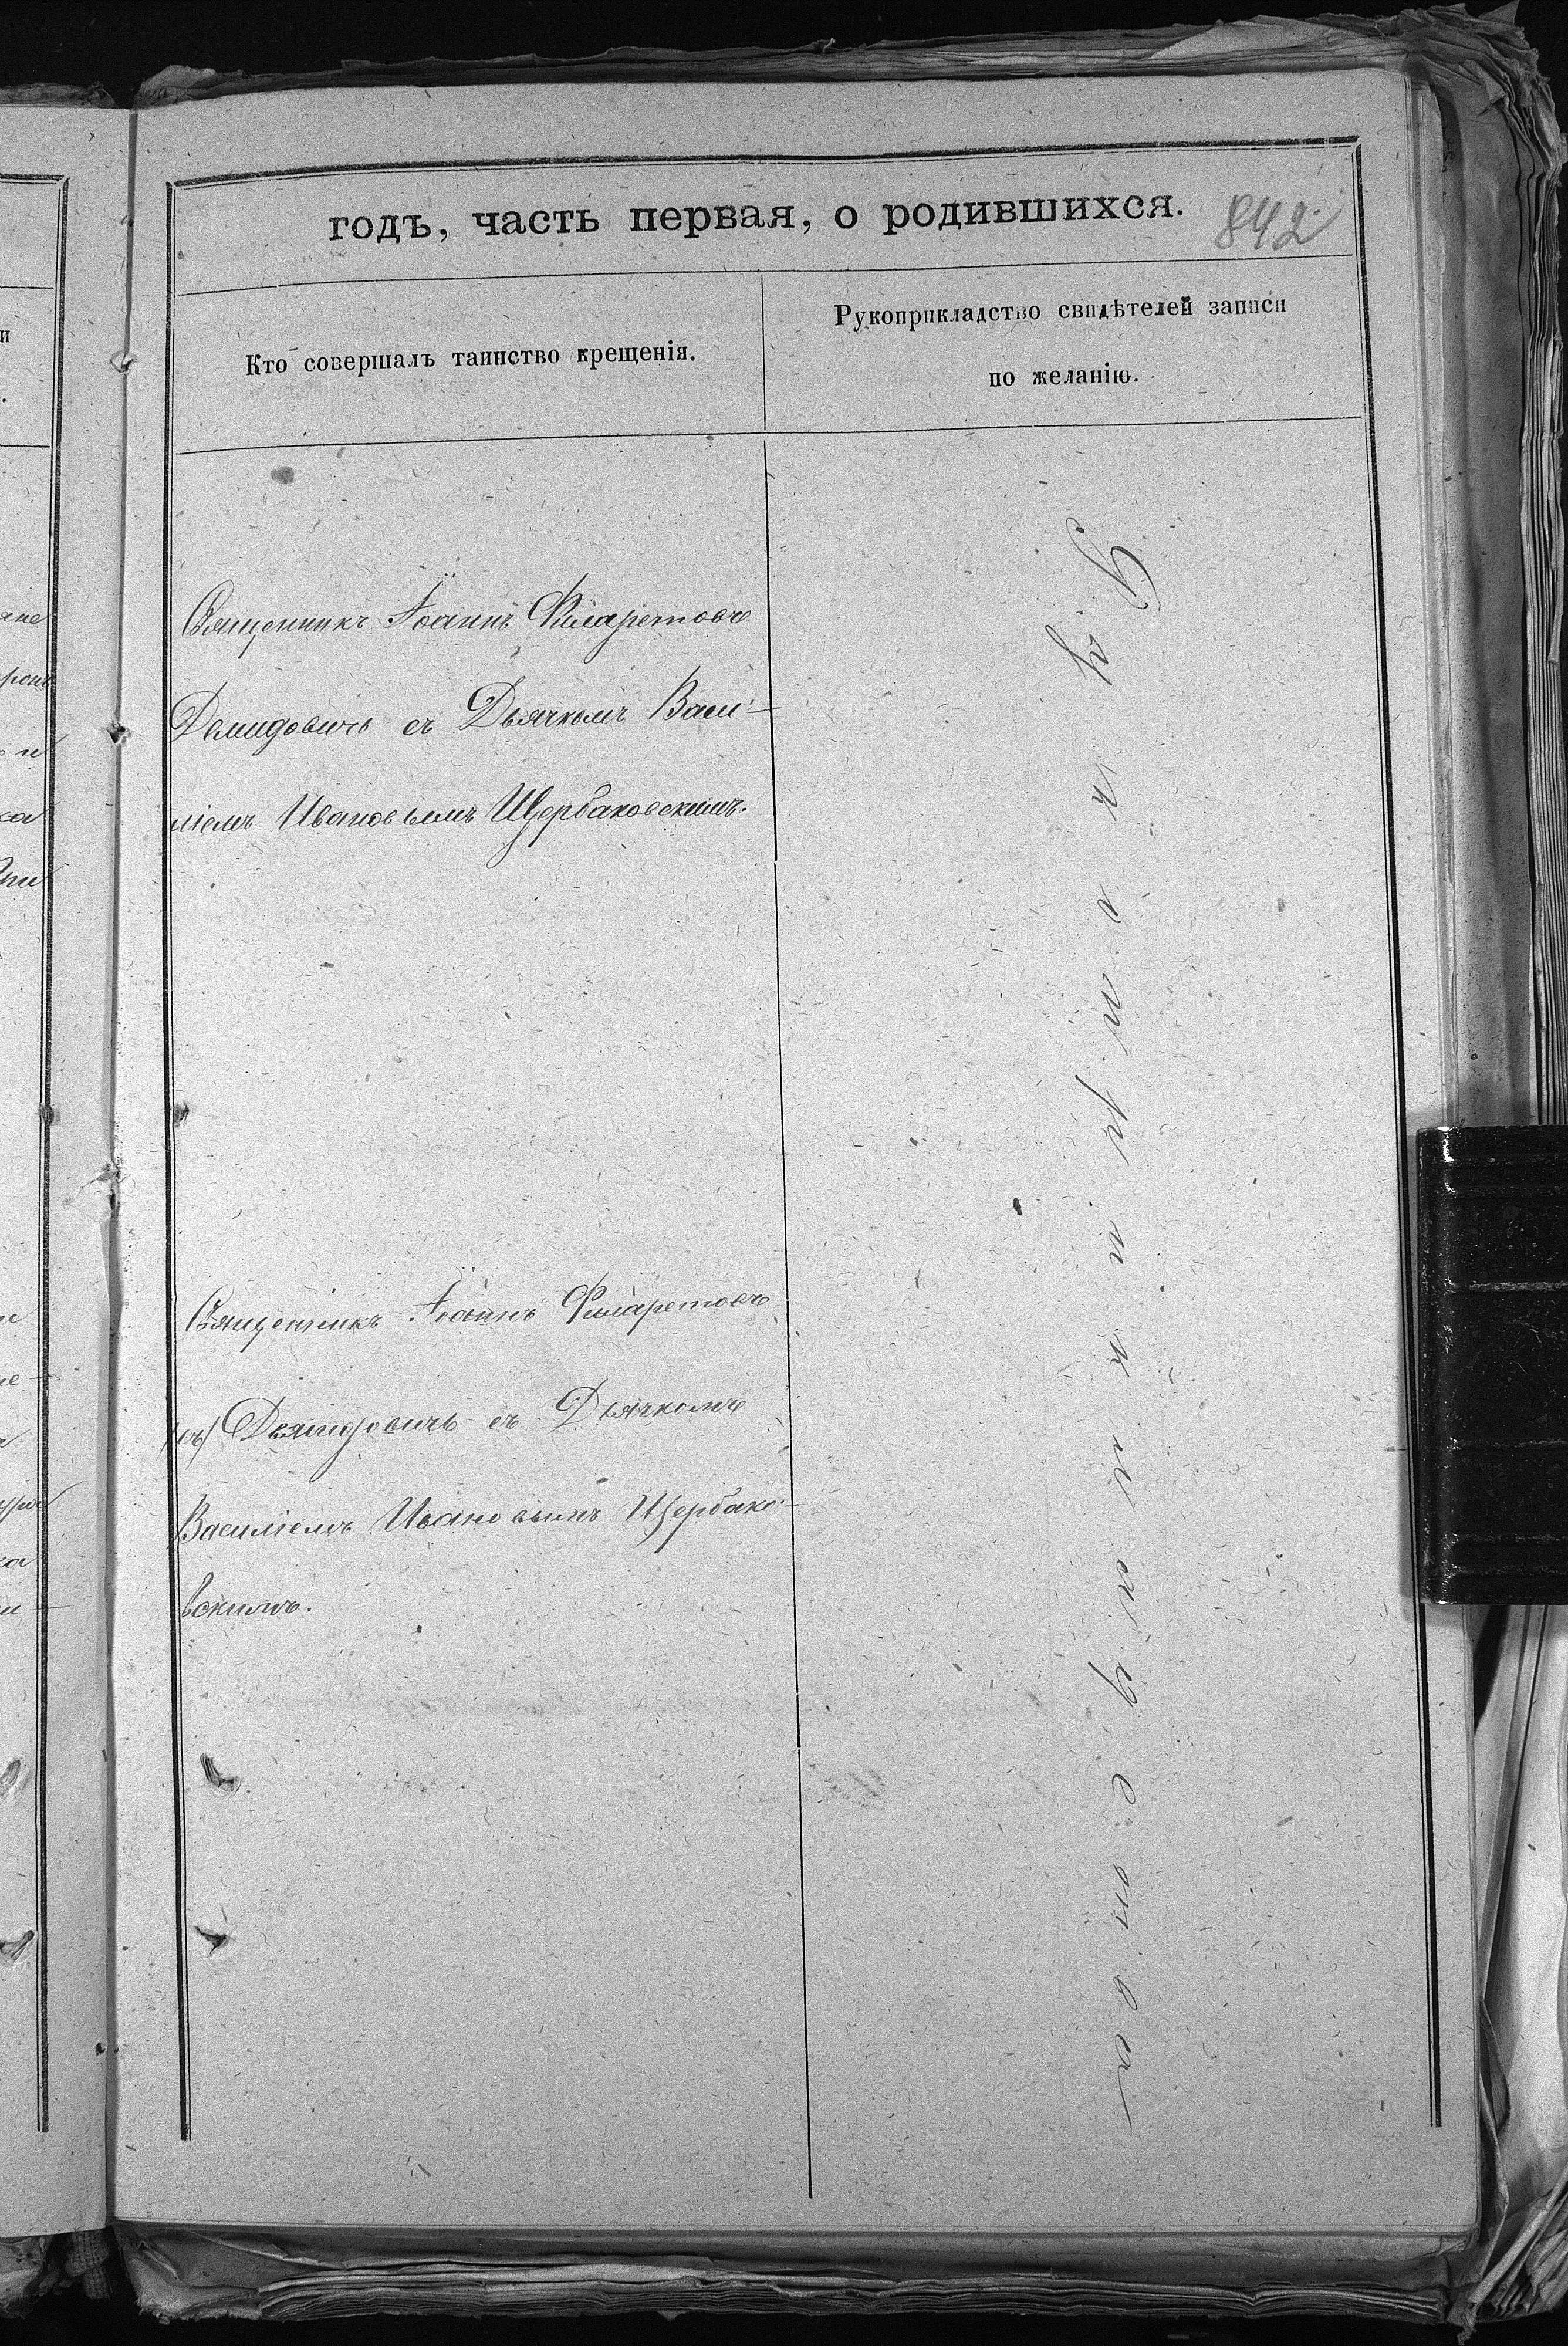 годъ, часть первая, о родившихся. 842
Кто совершалъ таинство крещенія.
Рукоприкладство свидѣтелей записи
по желанію.
Священникъ Іоаннъ Филаретовъ
Демидовичъ съ Дьячкомъ Васи-
ліемъ Ивановымъ Щербаковскимъ.
Священникъ Іоаннъ Филаретовъ
(съ) Демидовичъ съ Дьячкомъ
Василіемъ Ивановымъ Щербако-
вскимъ.
Рукоприкладства